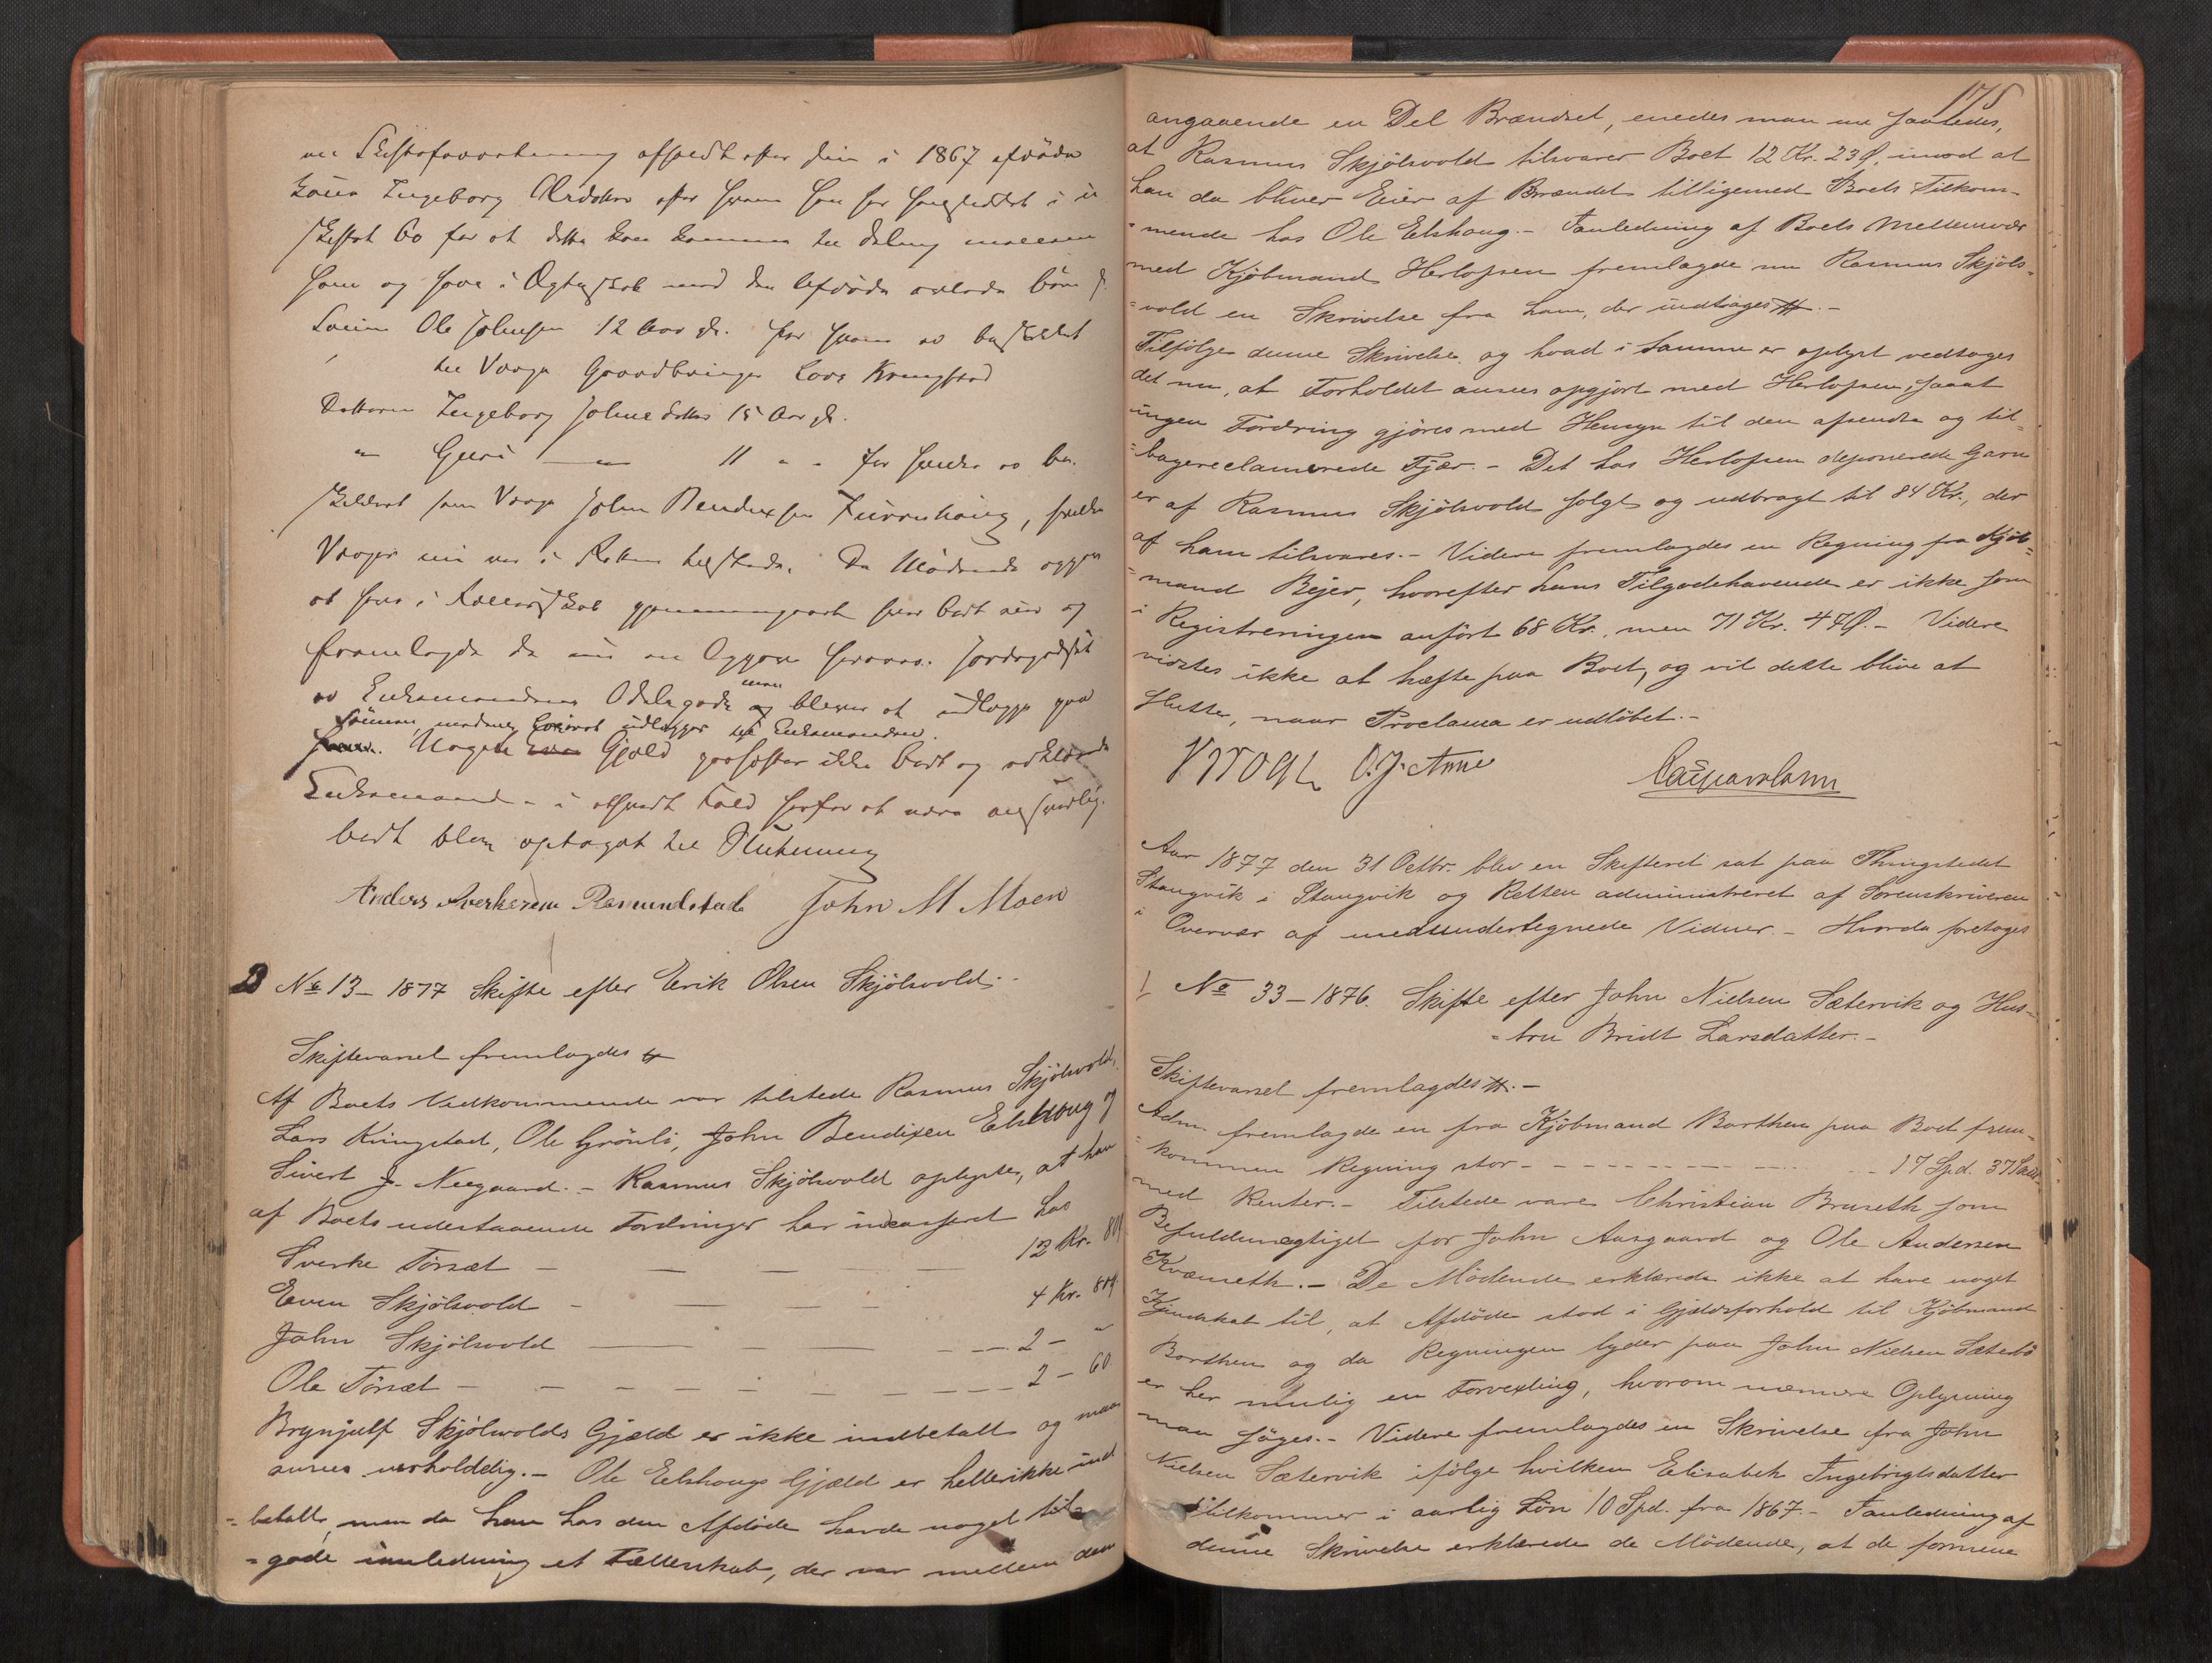 en Skifteforretning afholdt efter den i 1867 afdøde
Kone Ingeborg Olsdatter efter hvem han har hensiddet i u-
skiftet Bo for at dette kan komme til Deling mellem
ham og hans i Ægteskab med den afdøde avlede Børn
Sønnen Ole Johnsen 12 Aar gl. for hvem er beskikket
til Værge Gaardbruger Lars Kringstad
Datteren Ingeborg Johnsdatter 15 Aar gl.
" Guri — 11 " - for hende er be-
skikket som Værge John Bendixsen
Værger nu var i Retten tilstede. De Mødende opgav
at have i Fællesskab gjennemgaaet hver Boet eier og
fremlagde de nu en Opgave herover. Jordegodset
er Enkemandens Odelsgods og men bliver at udlægge paa
Sønnen, medens Løsøret udlægges til Enkemanden.
Nogen Gjæld paahefter ikke Boet og erklærede
Enkemanden i modsat Fald herfor at være ansvarlig.
Boet blev optaget til Slutning
Anders Sverkesen Ramundstad John M Moen
No 13 - 1877 Skifte efter Erik Olsen Skjölsvold.-
Skiftevarsel fremlagdes #
Af Boets Vedkommende var tilstede Rasmus Skjölsvold,
Lars Kringstad, Ole Grönli, John Bendixen Elshoug og
Sivert J. Neegaard. - Rasmus Skjölsvold oplyste, at han
af Boets udestaaende Fordringer har indcasseret hos
Sverke Törset — — — — 12 Kr. 80
Even Skjölsvold - — — - 4 Kr. 80
John Skjölsvold — — - - - 2 - "
Ole Törset - - - - - - - - 2 - 60
Brynjulf Skjölsvolds Gjæld er ikke indbetalt og maa
ansees uerholdelig. - Ole Eelshougs Gjæld er heller ikke ind
= betalt, men da han hos den Afdöde havde noget til
= gode i anledning et Fællesskab, der var mellem dem
175
angaaende en Del Brændsel, enedes man nu saaledes,
at Rasmus Skjölsvold tilsvarer Boet 12 Kr. 23 Ø, imod at
han da bliver Eier af Brændet tilligemed Boets Tilkom-
= mende hos Ole Elshoug. - I anledning af Boets Mellemvær
med Kjöbmand Herlofsen fremlagde nu Rasmus Skjöls-
= vold en Skrivelse fra ham, der indtoges #. -
Tilfölge denne Skrivelse og hvad i samme er oplyst vedtoges
det nu, at Forholdet ansees opgjort med Herlofsen, saaat
ingen Fordring gjöres med Hensyn til den afsendte og til-
= bagereclamerede Tjære. - Det hos Herlofsen deponerede Garn
er af Rasmus Skjölsvold solgt og udbragt til 84 Kr., der
af ham tilsvares. - Videre fremlagdes en Regning fra Kjöb-
= mand Bejer, hvorefter hans Tilgodehavende er ikke som
i Registreringen anfört 68 Kr., men 71 Kr. 47 Ø. - Videre
vidstes ikke at hæfte paa Boet, og vil dette blive at
slutte, naar Proclama er udlöbet. -
Krogh O. J. Aune
Aar 1877 den 31 Octbr. blev en Skifteret sat paa Thingstedet
Stangvik i Stangvik og Retten administreret af Sorenskriveren
i Overvær af medundertegnede Vidner. - Hvorda foretoges
No 33 - 1876. Skifte efter John Nielsen Sætervik og Hus-
= tru Bridt Larsdatter. -
Skiftevarsel fremlagdes #. -
Adm. fremlagde en fra Kjöbmand Barthen paa Boet frem-
= kommen Regning stor - - - - - - - 17 Spd. 37 Skill.
med Renter. - Tilstede vare Christian Bruseth som
Befuldmægtiget for John Aasgaard og Ole Andersen
Kvæmeth. - De Mödende erklærede ikke at have noget
Kjendskab til, at Afdöde stod i Gjældsforhold til Kjöbmand
Barthen og da Regningen lyder paa John Nielsen Sæterbö
er her mulig en Forvexling, hvorom nærmere Oplysning
man söges. - Videre fremlagdes en Skrivelse fra John
Nielsen Sætervik ifölge hvilken Elisabeth Ingebrigtsdatter
tilkommer i aarlig Lön 10 Spd. fra 1867. - I anledning af
denne Skrivelse erklærede de Mödende, at de formene